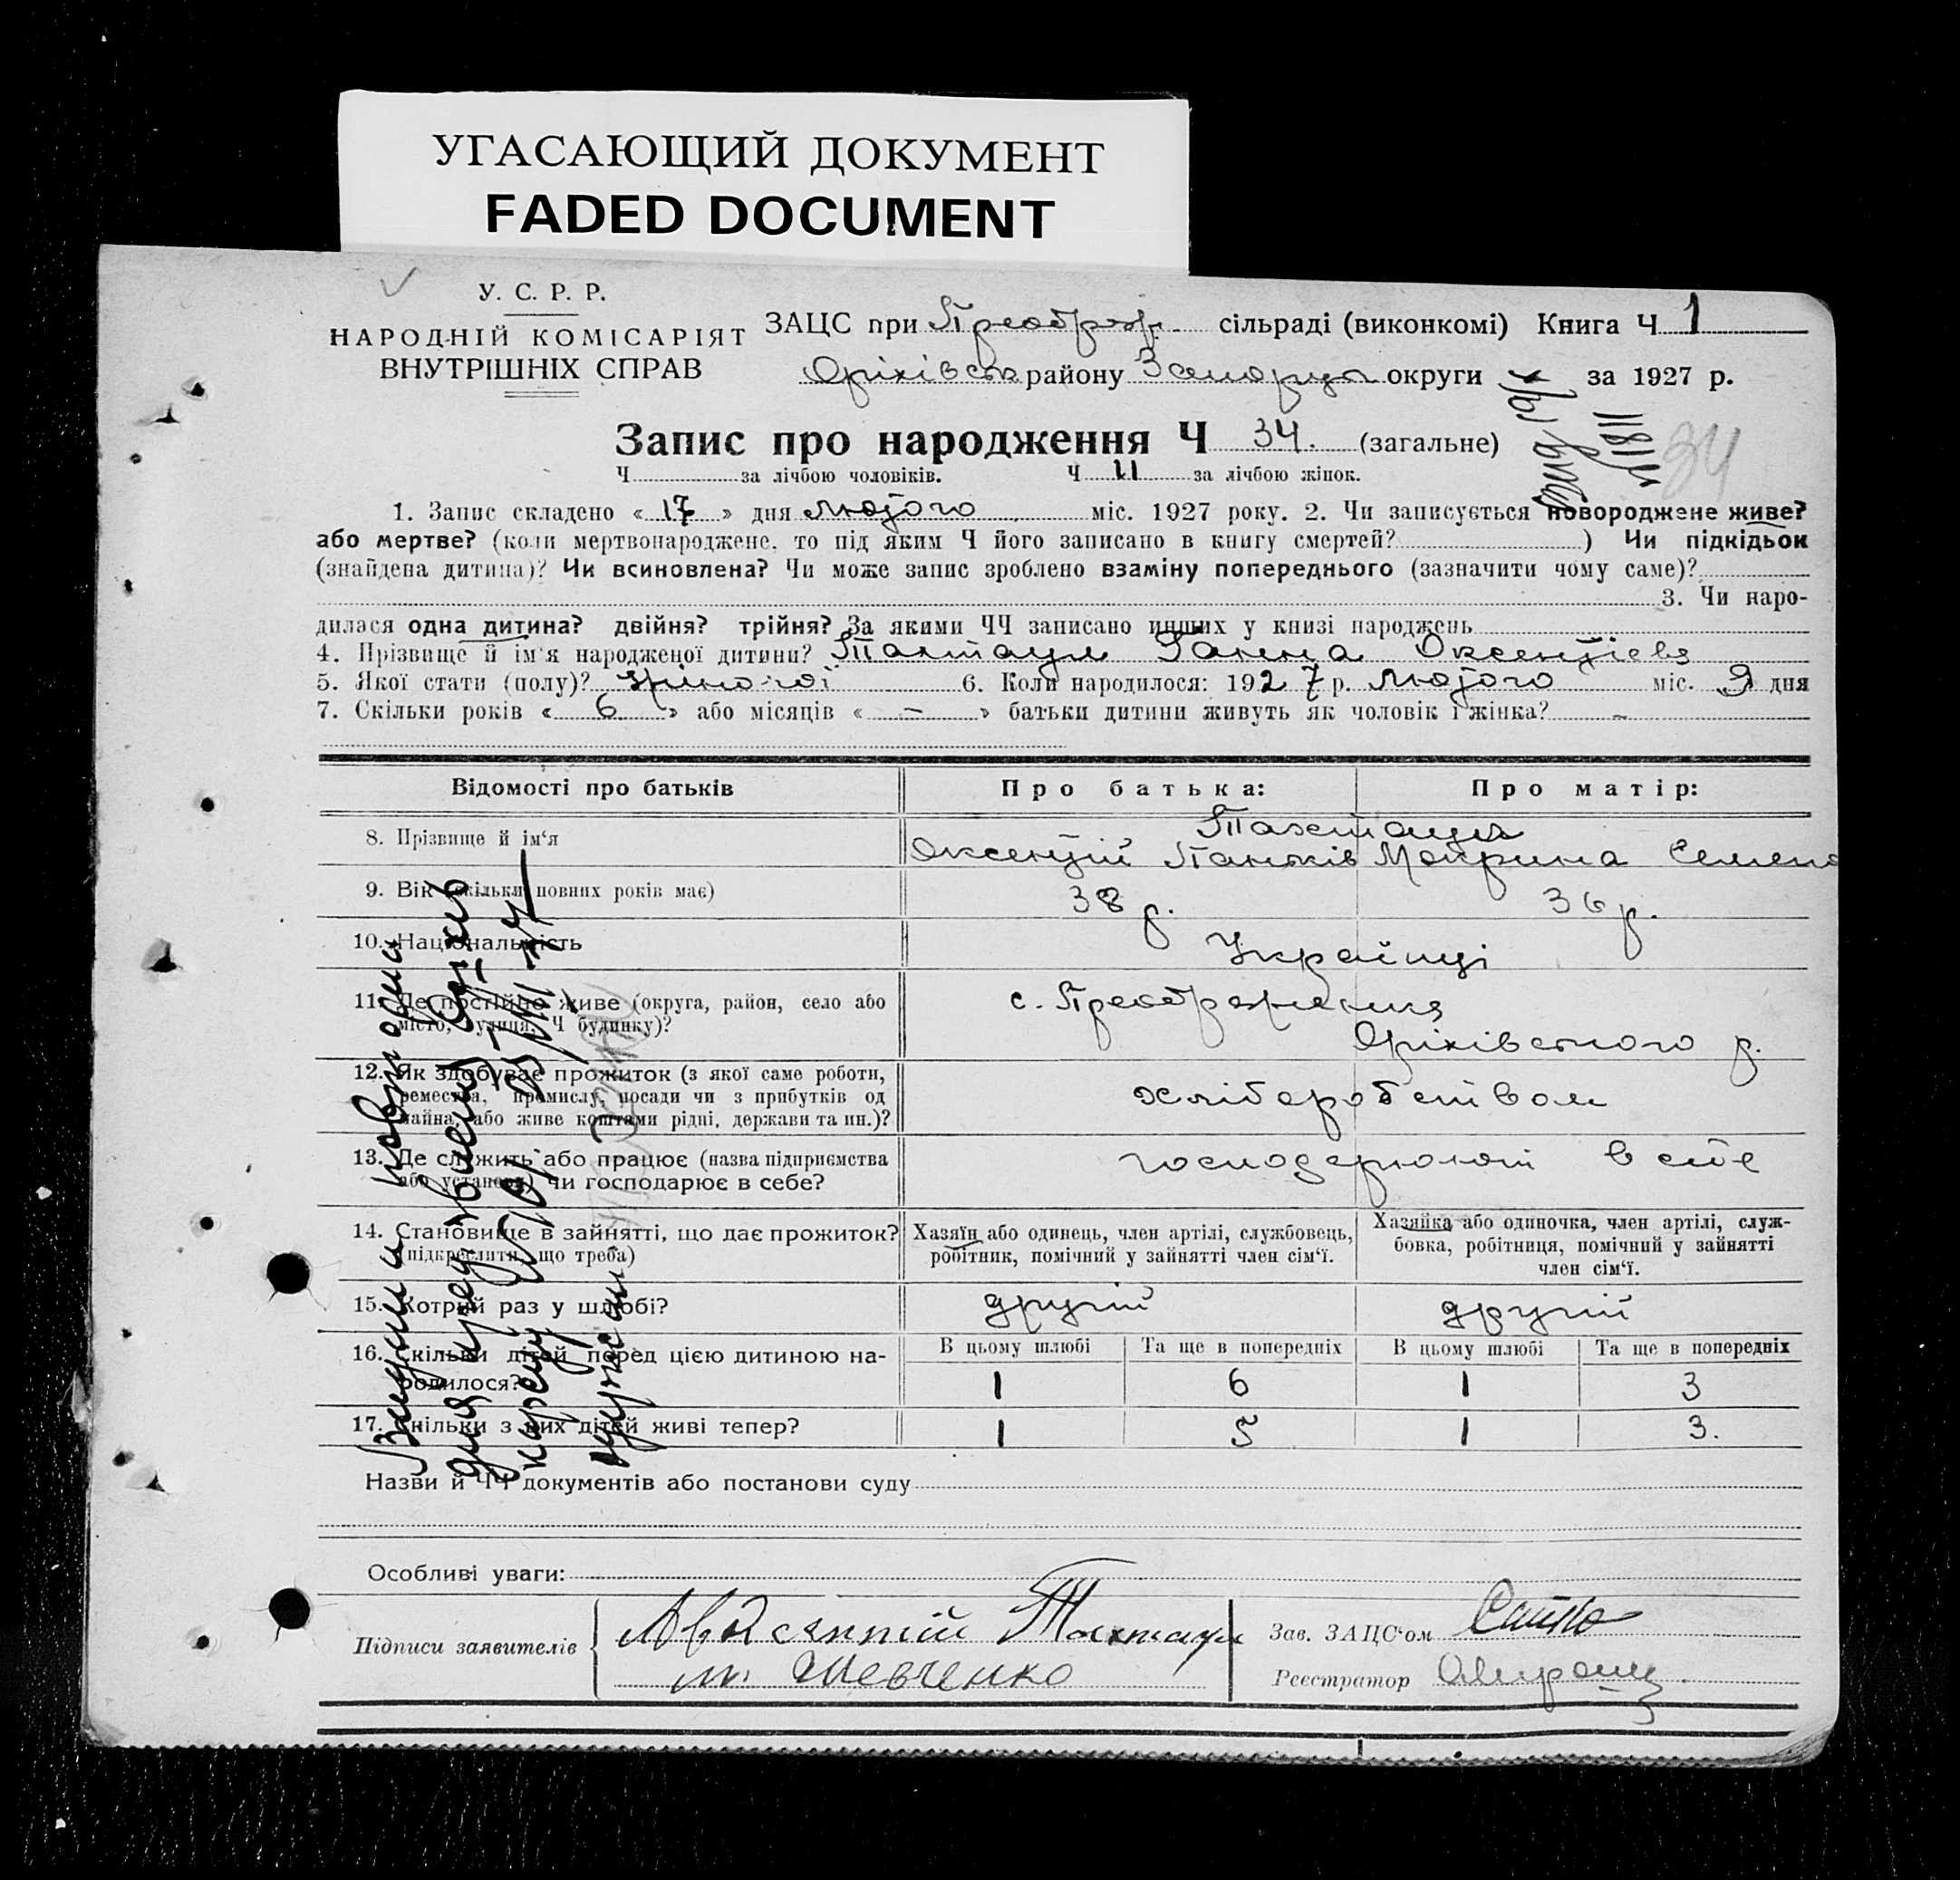 УГАСАЮЩИЙ ДОКУМЕНТ
FADED DOCUMENT
У. С. Р. Р.
НАРОДНІЙ КОМІСАРІЯТ
ВНУТРІШНІХ СПРАВ
ЗАЦС при Преображ. сільраді (виконкомі) Книга Ч 1
Оріхівськ району Запорізьк округи за 1927 р.
Запис про народження Ч 34. (загальне)
34
Ч за лічбою чоловіків. Ч 11 за лічбою жінок.
1. Запис складено « 17 » дня Лютого міс. 1927 року. 2. Чи записується новороджене живе?
або мертве? (коли мертвонароджене, то під яким Ч його записано в книгу смертей? ) Чи підкідьок
(знайдена дитина)? Чи всиновлена? Чи може запис зроблено взаміну попереднього (зазначити чому саме)?
3. Чи наро-
дилася одна дитина? двійня? трійня? За якими ЧЧ записано инших у книзі народжень
4. Прізвище й ім'я народженої дитини? Тахтаул Ганна Оксентієва
5. Якої стати (полу)? жіночої 6. Коли народилося: 1927 р. Лютого міс. 9 дня
7. Скільки років « 6 » або місяців « – » батьки дитини живуть як чоловік і жінка? –
Відомості про батьків Про батька: Про матір:
Тахтаул
8. Прізвище й ім'я Оксентій Паньків Мокрина Семено
9. Вік (скільки повних років має) 38 р. 36 р.
10. Національність Українці
11. Де постійно живе (округа, район, село або с. Преображенка
місто, вулиця, Ч будинку)? Оріхівського р.
12. Як здобуває прожиток (з якої саме роботи,
ремества, промислу, посади чи з прибутків од хліборобством
майна, або живе коштами рідні, держави та ин.)?
13. Де служить або працює (назва підприємства господарюють в себе
або установи) чи господарює в себе?
14. Становище в зайнятті, що дає прожиток? Хазяїн або одинець, член артілі, службовець, Хазяйка або одиночка, член артілі, служ-
(підкреслити, що треба) робітник, помічний у зайнятті член сім'ї. бовка, робітниця, помічний у зайнятті
член сім'ї.
15. Котрий раз у шлюбі? другий другий
16. Скільки дітей перед цією дитиною на- В цьому шлюбі Та ще в попередніх В цьому шлюбі Та ще в попередніх
родилося? 1 6 1 3
17. Скільки з них дітей живі тепер? 1 5 1 3.
Назви й ЧЧ документів або постанови суду
Особливі уваги:
Підписи заявителів Авксентий Тахтаул Зав. ЗАЦС'ом
т. Шевченко Реєстратор